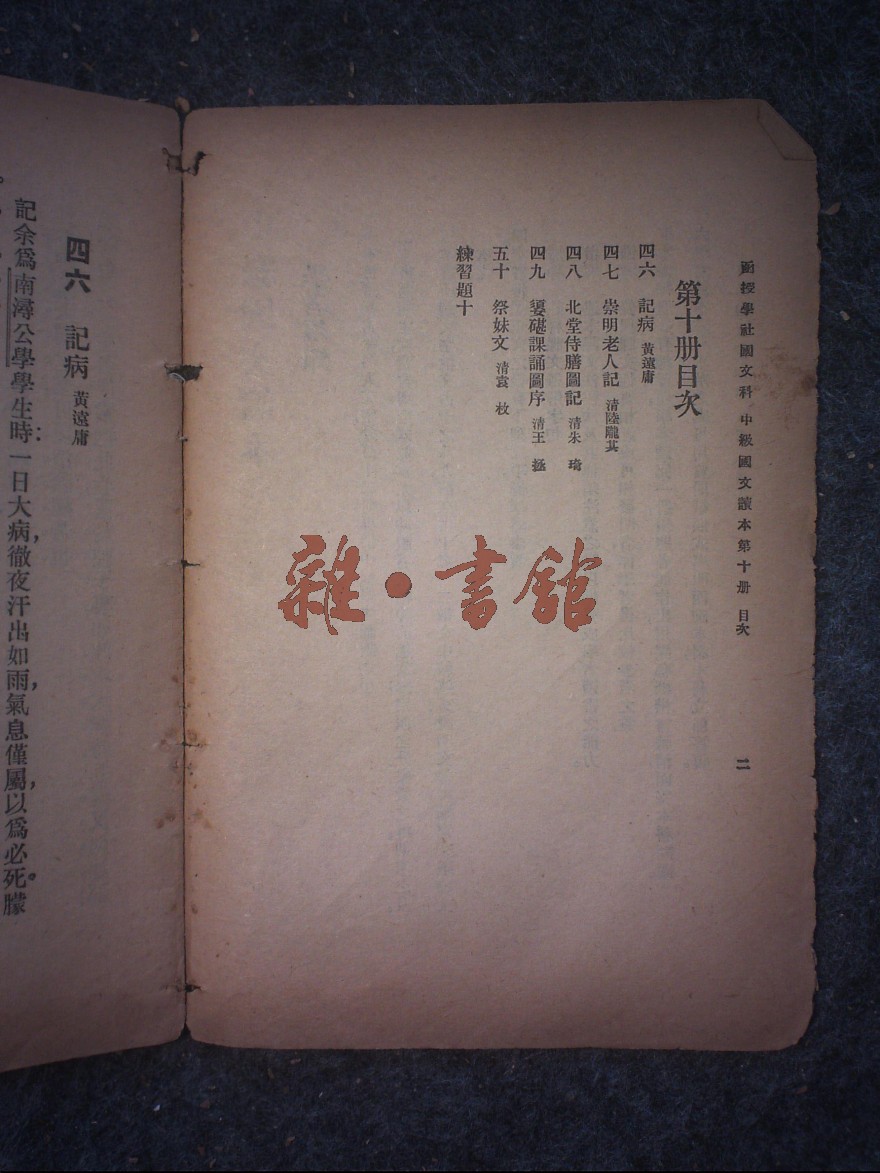 函授學社國文科 中級國文讀本第十册 目次 二
第十册目次
四六 記病 黃遠庸
四七 崇明老人記 清陸隴其
四八 北堂侍膳圖記 清朱琦
四九 媭碪課誦圖序 清王拯
五十 祭妹文 清袁枚
練習題十
雜·書館
四六 記病 黃遠庸
記余爲南潯公學學生時，一日大病，徹夜汗出如雨，氣息僅屬，以爲必死。朦